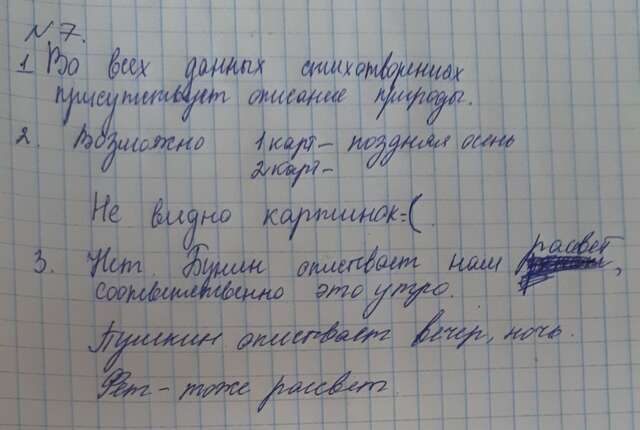 № 7.
1 Во всех данных стихотворениях
присутствует описание природы.
2. Возможно 1 карт – поздняя осень
2 карт –
Не видно картинок =(
3. Нет. Бунин описывает нам рассвет,
соответственно это утро.
Пушкин описывает вечер, ночь.
Фет – тоже рассвет.